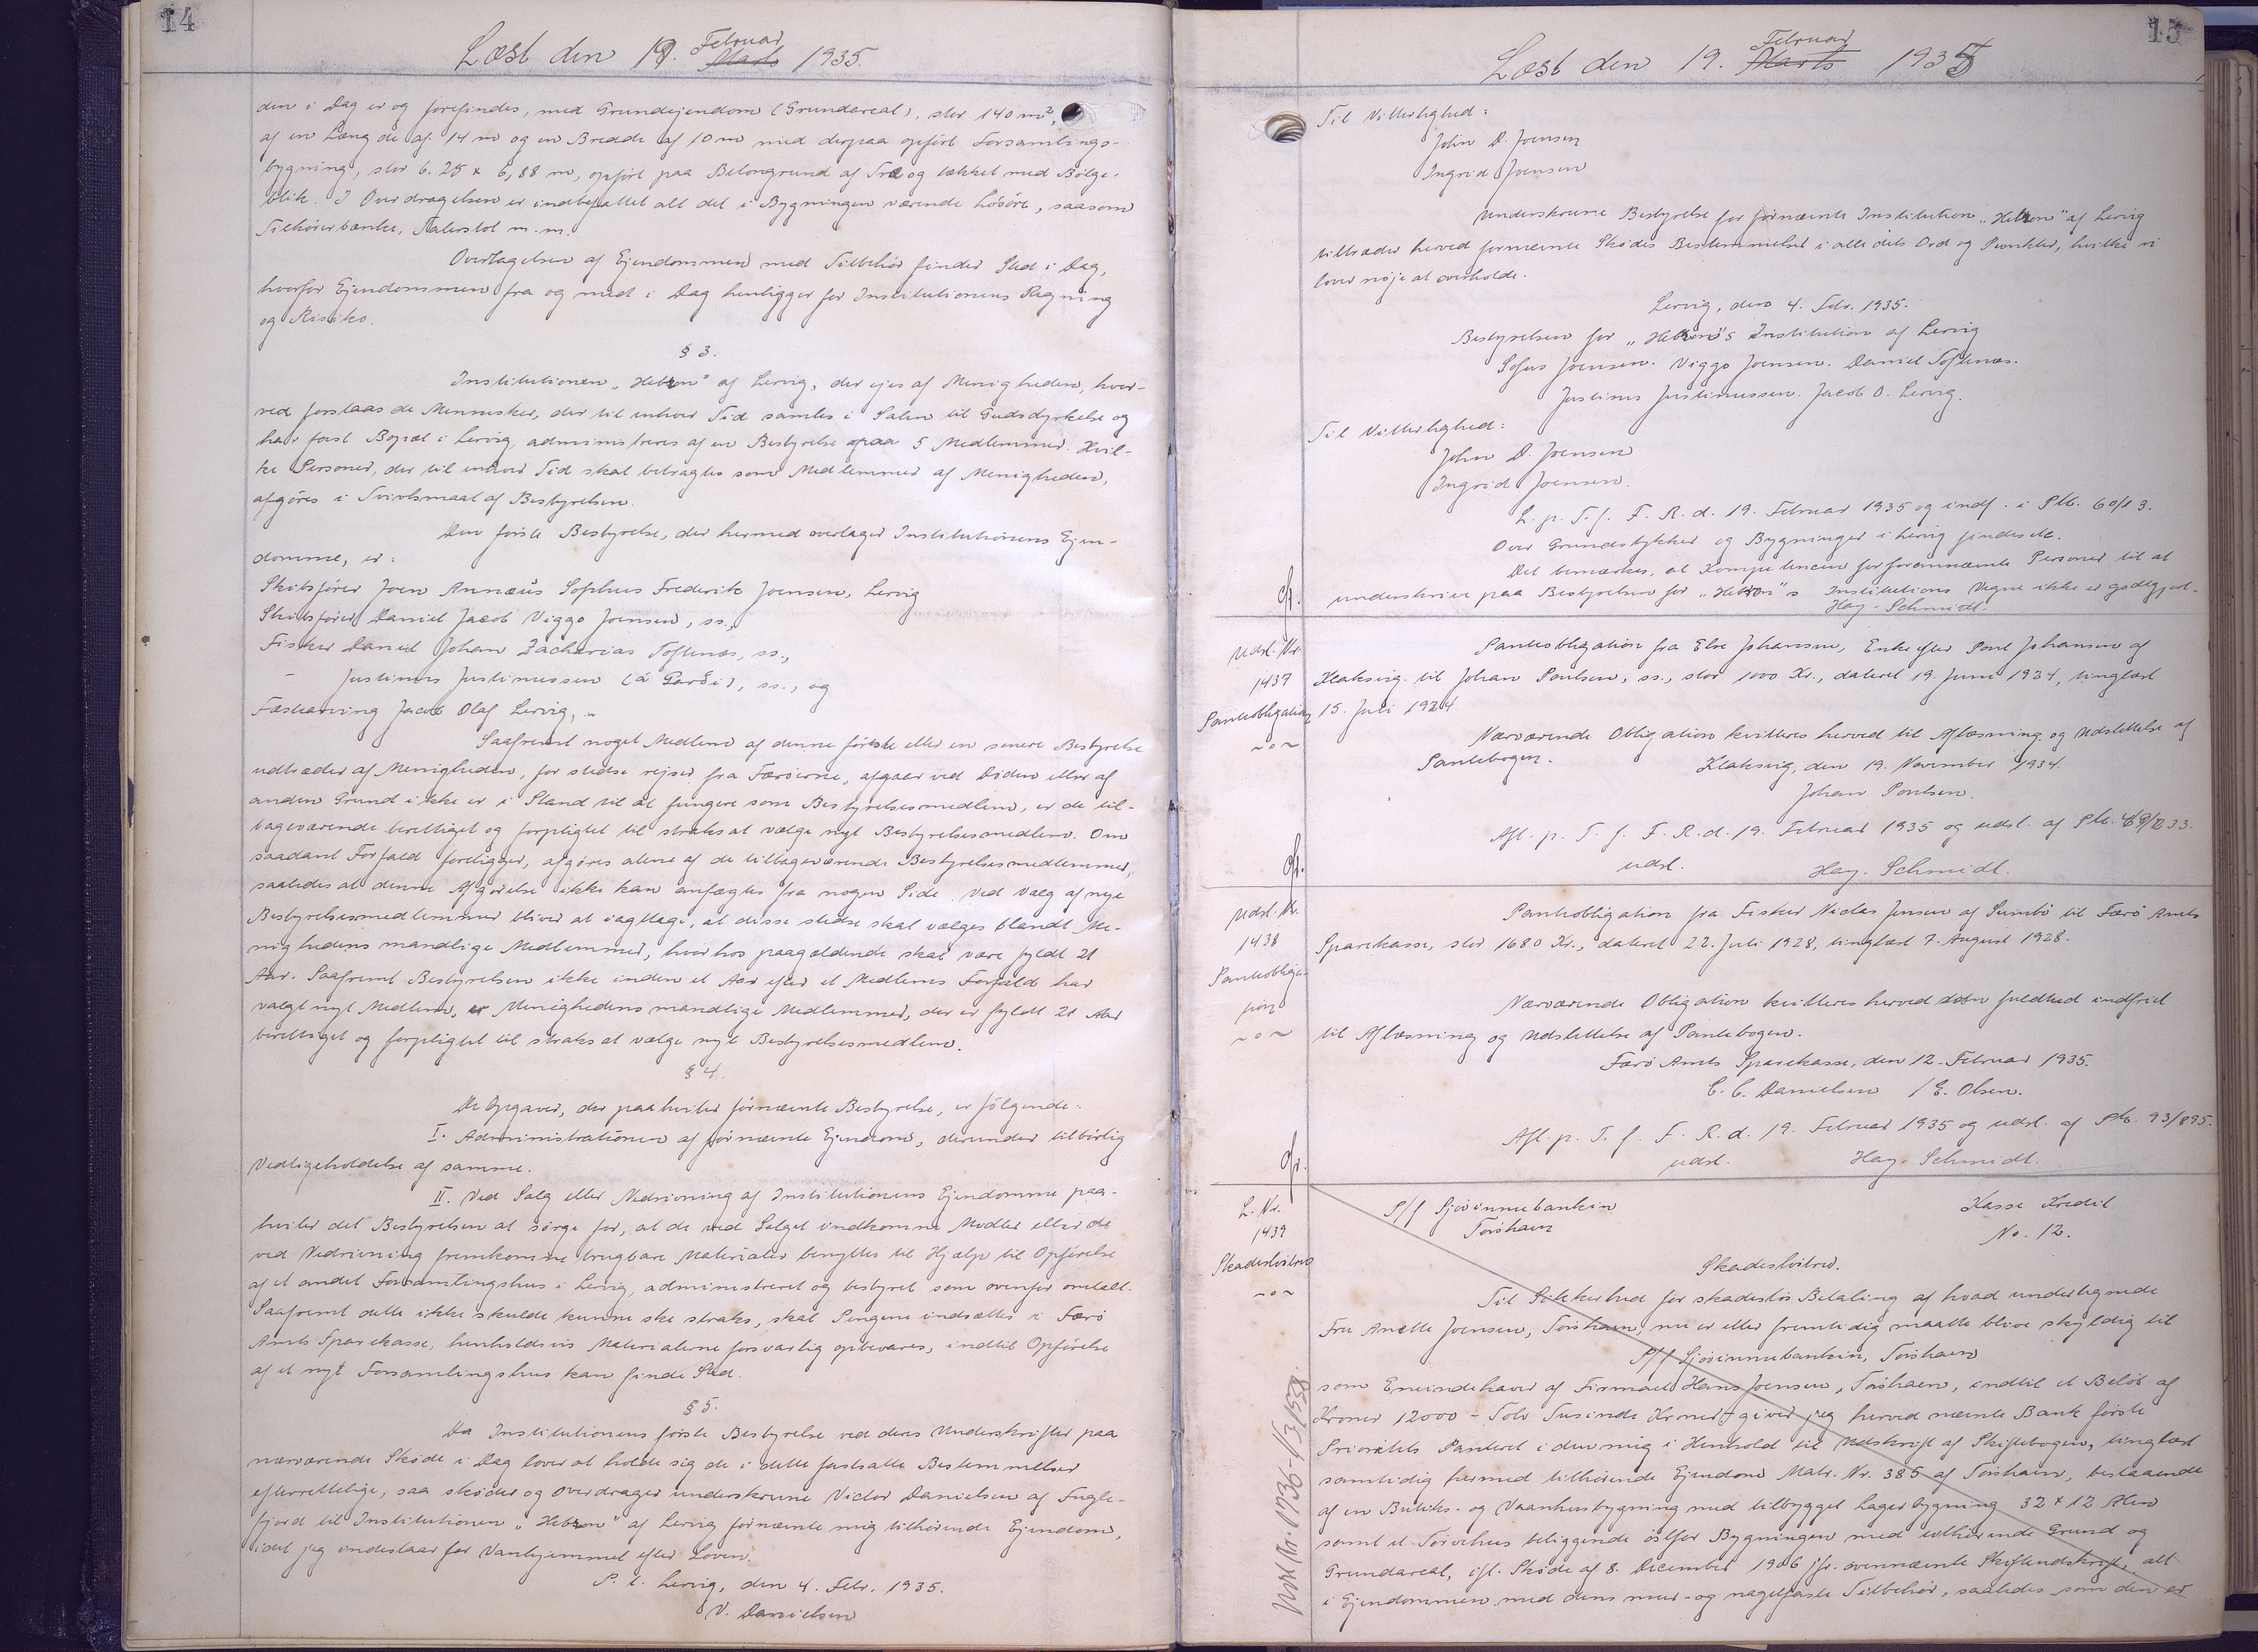 14
Læst den 19. Februar Marts 1935.
den i Dag er og forefindes, med Grundejendom (Grundareal), stor 140 m²,
af en Længde af 14 m og en Bredde af 10 m med derpaa opført Forsamlings-
bygning, stor 6.25 x 6,88 m, opført paa Betongrund af Træ og tækket med Bølge-
blik. I Overdragelsen er indbefattet alt det i Bygningen værende Løsøre, saasom
Tilhørerbænke, Talerstol m.m.
Overtagelsen af Ejendommen med Tilbehør finder Sted i Dag,
hvorfor Ejendommen fra og med i Dag henligger for Institutionens Regning
og Risiko.
§ 3.
Institutionen „Hebron" af Lervig, der ejes af Menigheden, hver-
ved forstaas de Mennesker, der til enhver Tid samles i Salen til Gudsdyrkelse og
har fast Bopæl i Lervig, administreres af en Bestyrelse paa 5 Medlemmer. Hvil-
ke Personer, der til enhver Tid skal betragtes som Medlemmer af Menigheden,
afgøres i Tvivlsmaal af Bestyrelsen.
Den første Bestyrelse, der hermed overtager Institutionens Ejen-
domme, er:
Skibsfører Joen Annæus Sophus Frederik Joensen, Lervig
Skibsfører Daniel Jacob Viggo Joensen, ss.,
Fisker Daniel Johan Zacharias Toftenæs, ss.,
- Justinus Justinussen (á Garði), ss., og
Fæstening Jacob Olaf Lervig, „
Saafremt noget Medlem af denne første eller en senere Bestyrelse
udtræder af Menigheden, for stedse rejser fra Færøerne, afgaar ved Døden eller af
anden Grund ikke er i Stand til at fungere som Bestyrelsesmedlem, er de til-
bageværende berettiget og forpligtet til straks at vælge nyt Bestyrelsesmedlem. Om
saadant Forfald foreligger, afgøres alene af de tilbageværende Bestyrelsesmedlemmer,
saaledes at denne Afgørelse ikke kan anfægtes fra nogen Side. Ved Valg af nye
Bestyrelsesmedlemmer bliver at iagttage, at disse stedse skal vælges blandt Me-
nighedens mandlige Medlemmer, hvorhos paagældende skal være fyldt 21
Aar. Saafremt Bestyrelsen ikke inden et Aar efter et Medlems Forfald har
valgt nyt Medlem, er Menighedens mandlige Medlemmer, der er fyldt 21 Aar
berettiget og forpligtet til straks at vælge nyt Bestyrelsesmedlem.
§ 4.
De Opgaver, der paahviler førnævnte Bestyrelse, er følgende:
I. Administrationen af førnævnte Ejendom, derunder tilbørlig
Vedligeholdelse af samme.
II. Ved Salg eller Nedrivning af Institutionens Ejendomme paa-
hviler det Bestyrelsen at sørge for, at de ved Salget indkomne Midler eller de
ved Nedrivning fremkomne brugbare Materialer benyttes til Hjælp til Opførelse
af et andet Forsamlingshus i Lervig, administreret og bestyret som ovenfor omtalt.
Saafremt dette ikke skulde kunne ske straks, skal Pengene indsættes i Færø
Amts Sparekasse, henholdsvis Materialerne forsvarlig opbevares, indtil Opførelse
af et nyt Forsamlingshus kan finde Sted.
§ 5.
Da Institutionens første Bestyrelse ved deres Underskrifter paa
nærværende Skøde i Dag lover at holde sig de i dette fastsatte Bestemmelser
efterrettelige, saa skøder og overdrager underskrevne Victor Danielsen af Fugle-
fjord til Institutionen „Hebron" af Lervig førnævnte mig tilhørende Ejendom,
idet jeg indestaar for Vanhjemmel efter Loven.
P.t. Lervig, den 4. Febr. 1935.
V. Danielsen
15
Læst den 19. Februar Marts 1935
Til Vitterlighed:
John D. Joensen
Ingrid Joensen
Underskrevne Bestyrelse for førnævnte Institution „Hebron" af Lervig
tiltræder herved førnævnte Skødes Bestemmelser i alle dets Ord og Punkter, hvilke vi
lover nøje at overholde.
Lervig, den 4. Febr. 1935.
Bestyrelsen for „Hebron"s Institution af Lervig
Sofus Joensen. Viggo Joensen. Daniel Toftenæs.
Justinus Justinussen. Jacob O. Lervig.
Til Vitterlighed:
John D. Joensen
Ingrid Joensen.
L. p. T. f. F. R. d. 19. Februar 1935 og indf. i Ptb. 60/13.
Over Grundstykker og Bygninger i Lervig findes etc.
Det bemærkes, at Kompetencen for forannævnte Personer til at
underskrive paa Bestyrelsen for „Hebron"s Institutions Vegne ikke er godtgjort.
Hay-Schmidt.
Udsl. Nr.
1437
Pantobligation
~o~
Pantobligation fra Else Johansen, Enke efter Poul Johansen af
Klaksvig til Johan Poulsen, ss., stor 1000 Kr., dateret 19. Juni 1924, tinglæst
15. Juli 1924.
Nærværende Obligation kvitteres herved til Aflæsning og Udslettelse af
Pantebogen.
Klaksvig, den 19. November 1934.
Johan Poulsen.
Afl. p. T. f. F. R. d. 19. Februar 1935 og udsl. af Ptb.
udsl.
Hay-Schmidt.
Udsl. Nr.
1438
Pantobliga-
tion
~o~
Pantobligation fra Fisker Niclas Jensen af Sumbø til Færø Amts
Sparekasse, stor 1680 Kr., dateret 22. Juli 1928, tinglæst 7. August 1928.
Nærværende Obligation kvitteres herved som fuldtud indfriet
til Aflæsning og Udslettelse af Pantebogen.
Færø Amts Sparekasse, den 12. Februar 1935.
C. C. Danielsen / E. Olsen.
Afl. p. T. f. F. R. d. 19. Februar 1935 og udsl. af Ptb. 93/895.
udsl.
Hay-Schmidt.
L. Nr.
1439
Skadesløsbrev
~o~
P/f Sjóvinnubankin
Tórshavn
Kasse Kredit
No. 12.
Skadesløsbrev.
Til Sikkerhed for skadesløs Betaling af hvad undertegnede
Fru Anette Joensen, Tórshavn, nu er eller fremtidig maatte blive skyldig til
P/f Sjóvinnubankin, Tórshavn
som Eneindehaver af Firmaet Hans Joensen, Tórshavn, indtil et Beløb af
Kroner 12000 - Tolv Tusinde Kroner - giver jeg herved nævnte Bank første
Prioritets Panteret i den mig i Henhold til Udskrift af Skiftebogen, tinglæst
samtidig hermed tilhørende Ejendom Matr. Nr. 385 af Tórshavn, bestaaende
af en Butiks- og Vaanhusbygning med tilbygget Lagerbygning 32 x 12 Alen
samt et Tørvehus beliggende østfor Bygningen med tilhørende Grund og
Grundareal, ifl. Skøde af 8. December 1906 jfr. ovennævnte Skifteudskrift, alt
i Ejendommen med dens mur- og nagelfaste Tilbehør, saaledes som den er
Udsl. Nr. 1736 - 1/3 1538